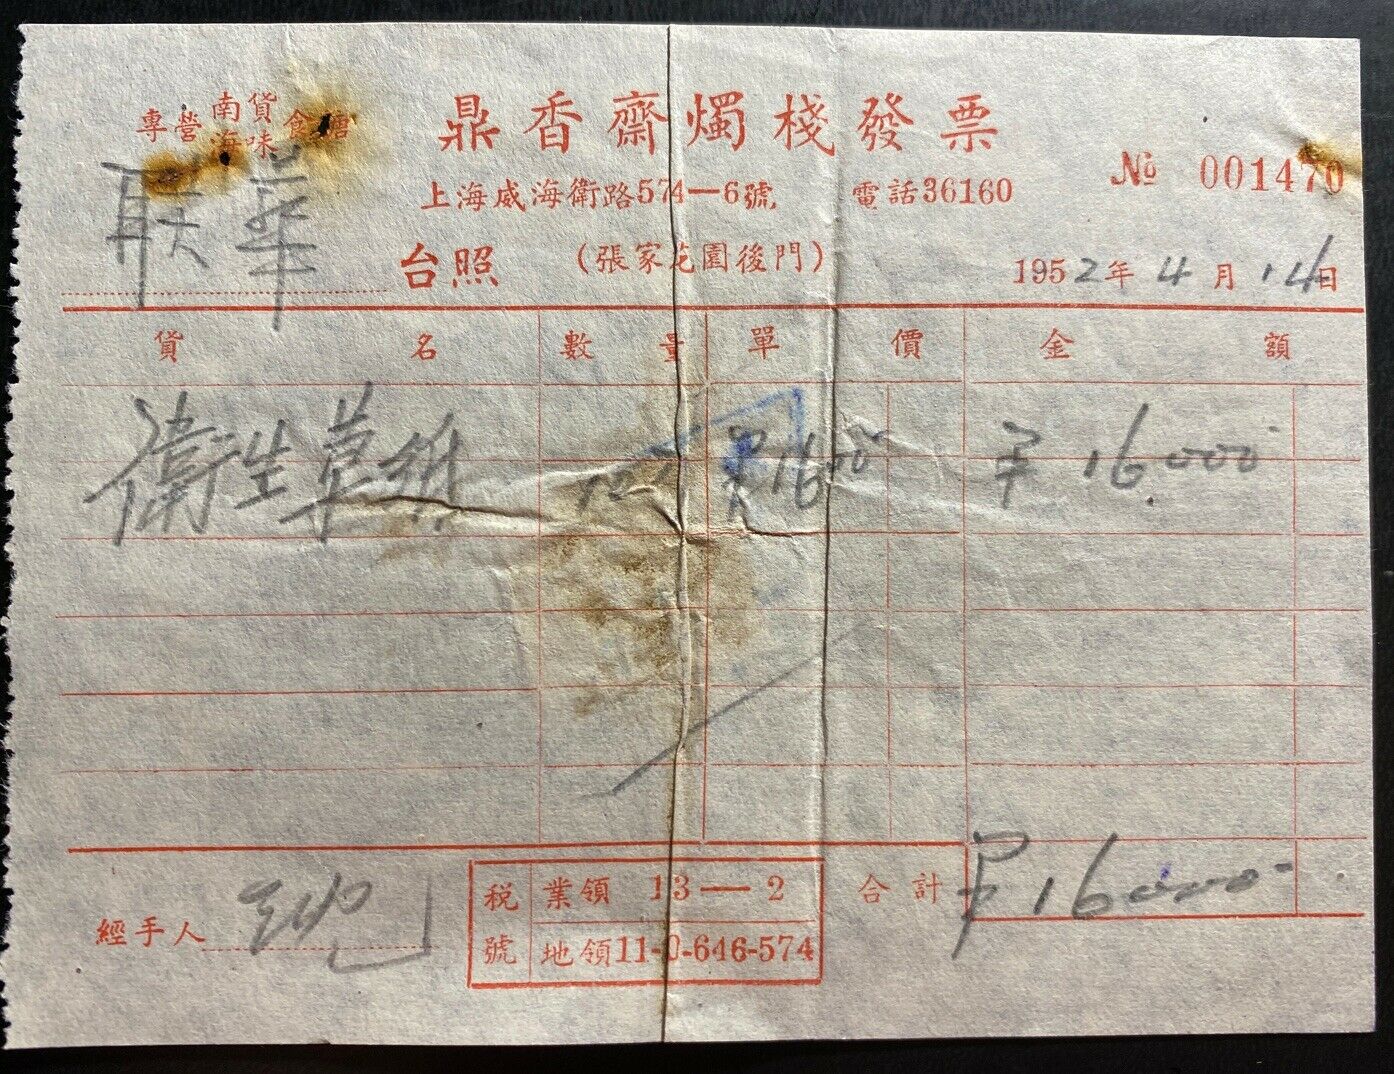 專營 南貨 海味 食糖
鼎香齋燭棧發票
№ 001470
上海威海衛路574—6號 電話36160
联華 台照 (張家花園後門) 1952年4月14日
貨名 數量 單價 金額
衛生草紙 10 ¥1600 ¥16000
經手人
稅號 業領 13—2
地領 11-0-646-574
合計 ¥16000